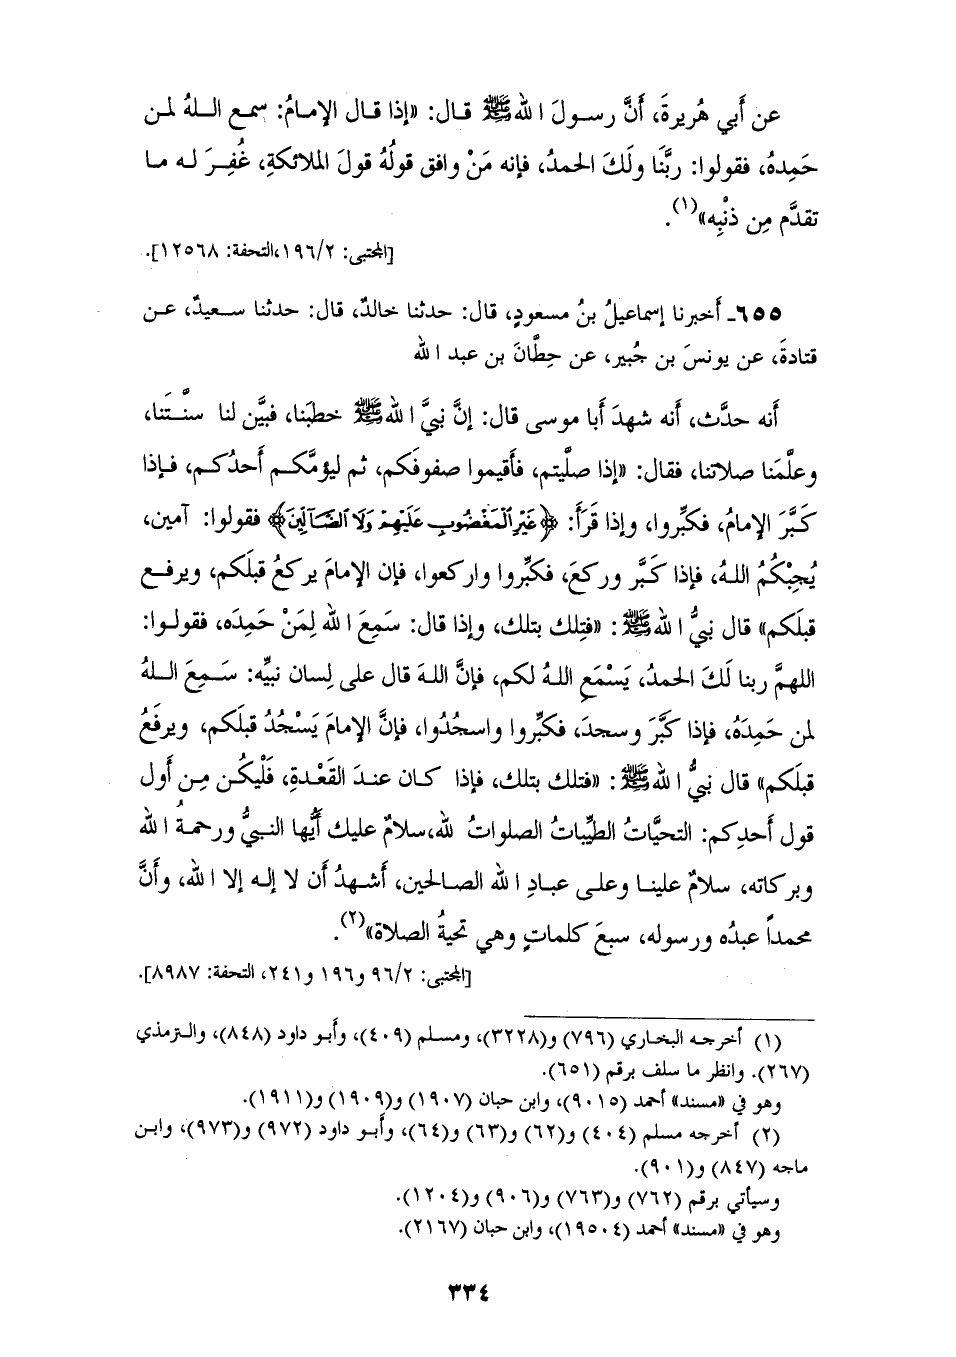 عن أَبي هُريرةَ، أَنَّ رسولَ اللهﷺ قال: «إذا قال الإمامُ: سمع اللهُ لمن
حَمِدهُ، فقولوا: ربَّنا ولَكَ الحمدُ، فإنه مَنْ وافق قولُهُ قولَ الملائكةِ، غُفِرَ له ما
تقدَّم مِن ذنْبِه»(١).
[المجتبى: ١٩٦/٢،التحفة: ١٢٥٦٨].
٦٥٥ـ أَخبرنا إسماعيلُ بنُ مسعودٍ، قال: حدثنا خالدٌ، قال: حدثنا سعيدٌ، عن
قتادةَ، عن يونسَ بن جُبير، عن حِطَّانَ بن عبد الله
أَنه حدَّث، أَنه شهدَ أَبا موسى قال: إنَّ نبيَّ اللهﷺ خطبَنا، فبيَّن لنا سنَّتَنا،
وعلَّمَنا صلاتنا، فقال: «إذا صلَّيتم، فأقيموا صفوفَكم، ثم ليؤمَّكم أَحدُكم، فإذا
كَبَّرَ الإمامُ، فكبِّروا، وإذا قَرَأَ: ﴿غَيْرِ الْمَغْضُوبِ عَلَيْهِمْ وَلَا الضَّآلِّينَ﴾ فقولوا: آمين،
يُجِبْكُمُ اللهُ، فإذا كَبَّر وركعَ، فكبِّروا واركعوا، فإن الإمامَ يركعُ قبلَكم، ويرفع
قبلَكم» قال نبيُّ اللهﷺ: «فتِلك بتلك، وإذا قال: سَمِعَ الله لِمَنْ حَمِدَه، فقولوا:
اللهمَّ ربنا لَكَ الحمدُ، يَسْمَعِ اللهُ لكم، فإنَّ اللهَ قال على لِسان نبيِّه: سَمِعَ اللهُ
لمن حَمِدَهُ، فإذا كَبَّرَ وسجدَ، فكبِّروا واسجُدُوا، فإنَّ الإمامَ يَسْجُدُ قبلَكم، ويرفَعُ
قبلَكم» قال نبيُّ اللهﷺ: «فتلك بتلك، فإذا كان عندَ القَعْدةِ، فَلْيكُن مِن أَول
قول أَحدِكم: التحيَّاتُ الطيِّباتُ الصلواتُ لله،سلامٌ عليك أَيُّها النبيُّ ورحمةُ الله
وبركاته، سلامٌ علينا وعلى عبادِ الله الصالحين، أَشهدُ أَن لا إله إلا الله، وأَنَّ
محمداً عبدُه ورسوله، سبعَ كلماتٍ وهي تحيةُ الصلاة»(٢).
[المجتبى: ٩٦/٢ و١٩٦ و٢٤١، التحفة: ٨٩٨٧].
(١) أخرجه البخاري (٧٩٦) و(٣٢٢٨)، ومسلم (٤٠٩)، وأبو داود (٨٤٨)، والترمذي
(٢٦٧). وانظر ما سلف برقم (٦٥١).
وهو في «مسند» أحمد (٩٠١٥)، وابن حبان (١٩٠٧) و(١٩٠٩) و(١٩١١).
(٢) أخرجه مسلم (٤٠٤) و(٦٢) و(٦٣) و(٦٤)، وأبو داود (٩٧٢) و(٩٧٣)، وابن
ماجه (٨٤٧) و(٩٠١).
وسيأتي برقم (٧٦٢) و(٧٦٣) و(٩٠٦) و(١٢٠٤).
وهو في «مسند» أحمد (١٩٥٠٤)، وابن حبان (٢١٦٧).
٣٣٤